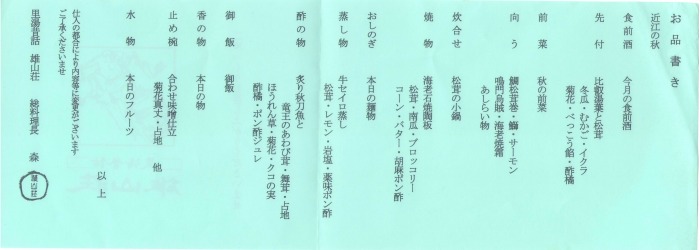 お品書き
近江の秋
食前酒 今月の食前酒
先付 比叡湯葉と松茸
冬瓜・むかご・イクラ
菊花・べっこう餡・酢橘
前菜 秋の前菜
向う 鯛松茸巻・鰤・サーモン
鳴門烏賊・海老焼霜
あしらい物
炊合せ 松茸の小鍋
焼物 海老石焼陶板
松茸・南瓜・ブロッコリー
コーン・バター・胡麻ポン酢
おしのぎ 本日の麺物
蒸し物 牛セイロ蒸し
松茸・レモン・岩塩・薬味ポン酢
酢の物 炙り秋刀魚と
竜王のあわび茸・舞茸・占地
ほうれん草・菊花・クコの実
酢橘・ポン酢ジュレ
御飯 御飯
香の物 本日の物
止め椀 合わせ味噌仕立
菊花真丈・占地 他
水物 本日のフルーツ
以上
仕入の都合により内容等に変更がございます
ご了承くださいませ
里湯昔話 雄山荘 総料理長 森